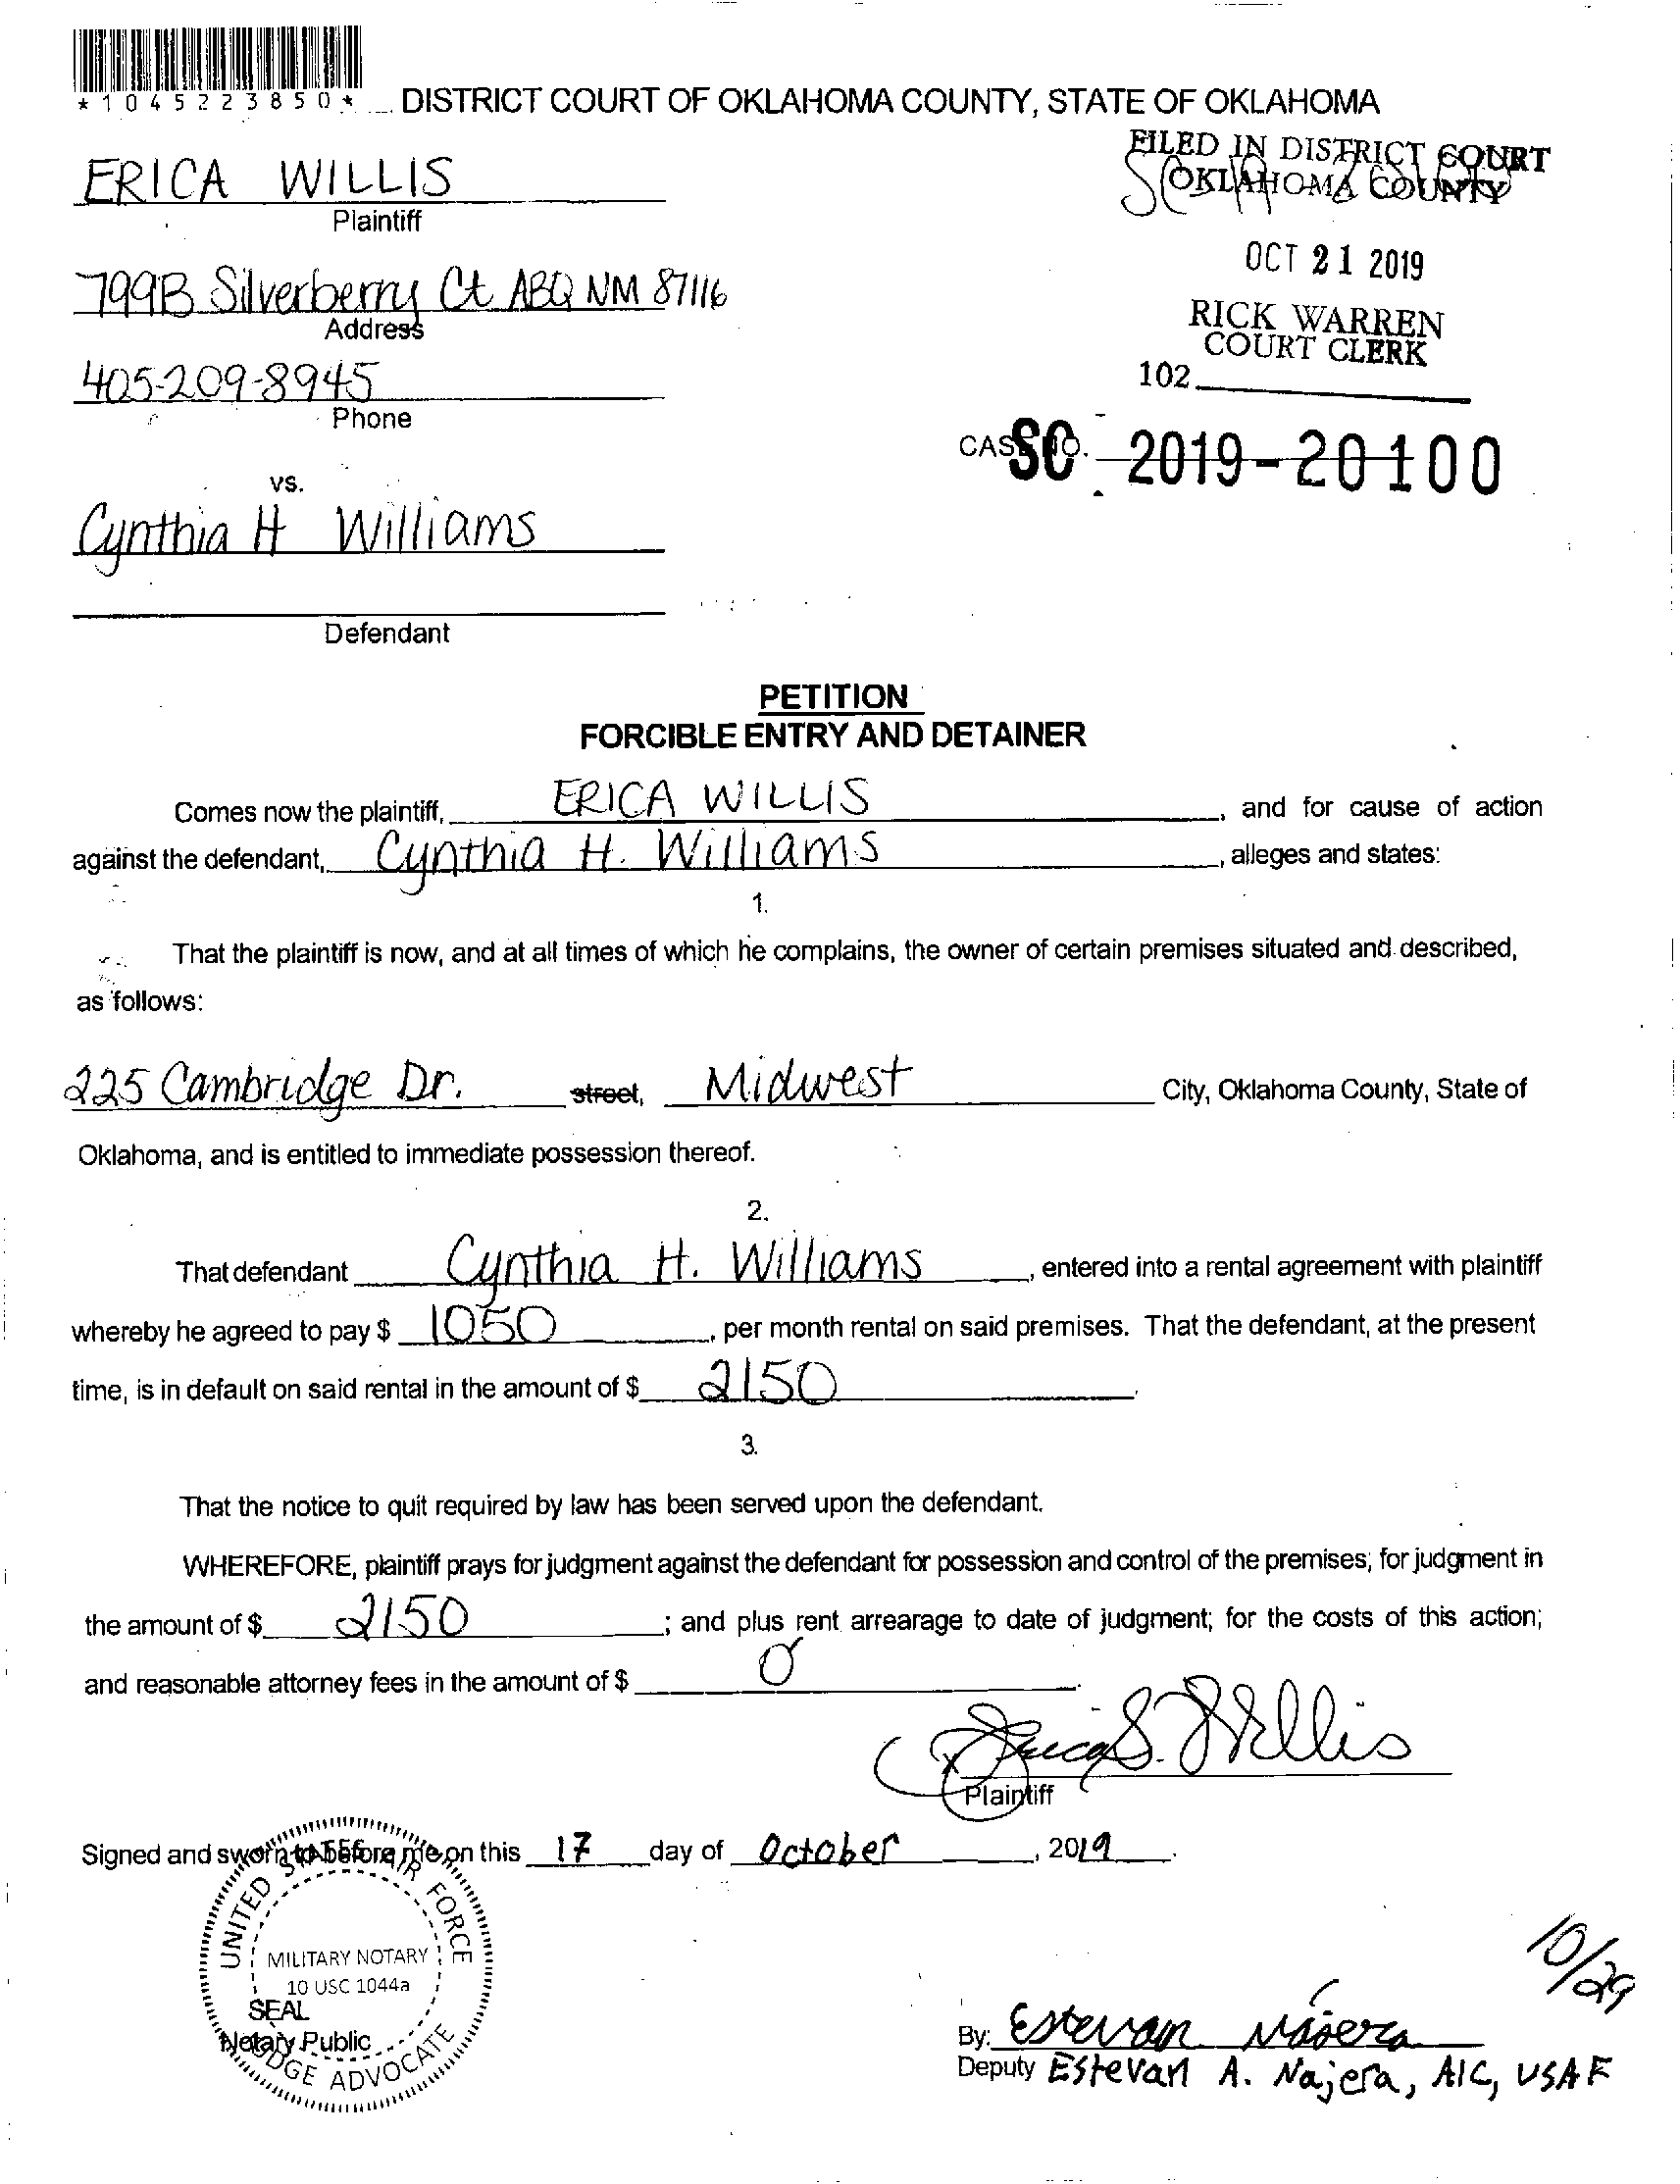 *1045223850*
DISTRICT COURT OF OKLAHOMA COUNTY, STATE OF OKLAHOMA
FILED IN DISTRICT COURT
OKLAHOMA COUNTY
ERICA WILLIS
Plaintiff
OCT 21 2019
799B Silverberry Ct ABQ NM 87116
Address
RICK WARREN
COURT CLERK
405-209-8945
102
Phone
CASE NO. SC 2019-20100
vs.
Cynthia H Williams
Defendant
PETITION
FORCIBLE ENTRY AND DETAINER
Comes now the plaintiff, ERICA WILLIS, and for cause of action
against the defendant, Cynthia H. Williams, alleges and states:
1.
That the plaintiff is now, and at all times of which he complains, the owner of certain premises situated and described,
as follows:
225 Cambridge Dr. street, Midwest City, Oklahoma County, State of
Oklahoma, and is entitled to immediate possession thereof.
2.
That defendant Cynthia H. Williams, entered into a rental agreement with plaintiff
whereby he agreed to pay $ 1050, per month rental on said premises. That the defendant, at the present
time, is in default on said rental in the amount of $ 2150.
3.
That the notice to quit required by law has been served upon the defendant.
WHEREFORE, plaintiff prays for judgment against the defendant for possession and control of the premises; for judgment in
the amount of $ 2150; and plus rent arrearage to date of judgment; for the costs of this action;
and reasonable attorney fees in the amount of $ 0.
x Erica S. Willis
Plaintiff
Signed and sworn to before me on this 17 day of October, 2019.
UNITED STATES AIR FORCE
MILITARY NOTARY
10 USC 1044a
SEAL
Notary Public
JUDGE ADVOCATE
10/29
By: Estevan Najera
Deputy Estevan A. Najera, A1C, USAF